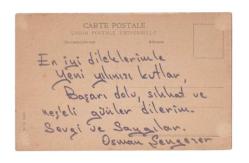 CARTE POSTALE
UNION POSTALE UNIVERSELLE
En iyi dileklerimle
Yeni yılınızı kutlar,
Başarı dolu, sıhhat ve
neş'eli günler dilerim.
Sevgi ve Saygılar.
Osman